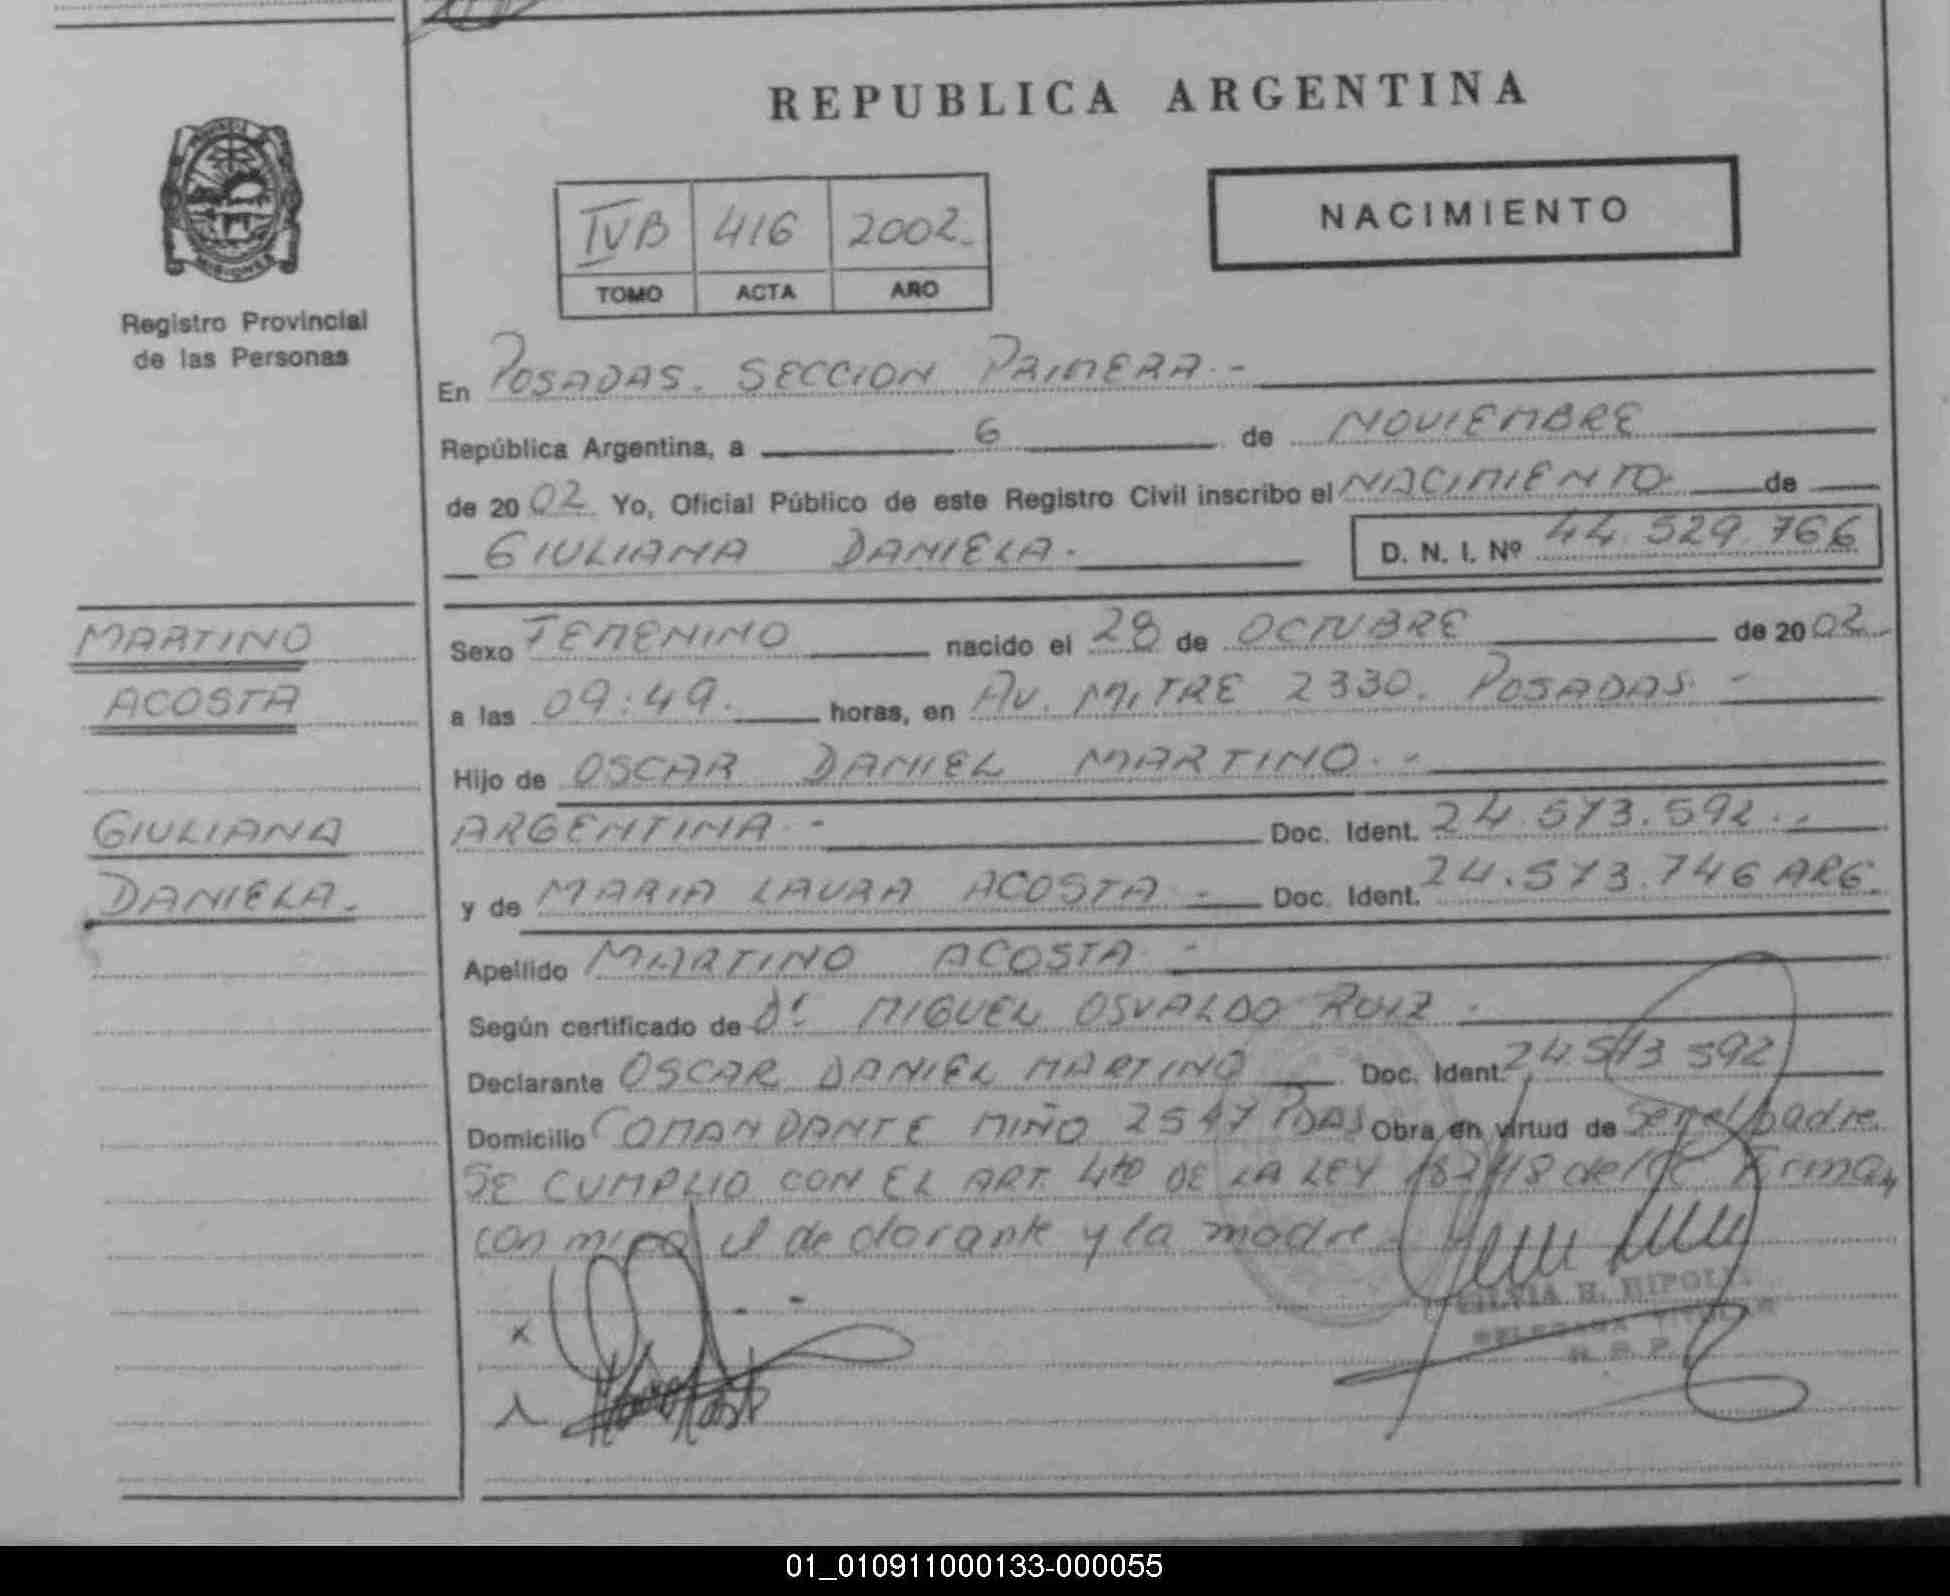 REPUBLICA ARGENTINA
MISIONES
Registro Provincial
de las Personas
IVB 416 2002.
TOMO ACTA AÑO
NACIMIENTO
En POSADAS. SECCION PRIMERA.-
República Argentina, a 6 de NOVIEMBRE
de 2002 Yo, Oficial Público de este Registro Civil inscribo el NACIMIENTO de
GIULIANA DANIELA. D. N. I. Nº 44.529.766
MARTINO
ACOSTA
GIULIANA
DANIELA.
Sexo FEMENINO nacido el 28 de OCTUBRE de 2002.
a las 09:49. horas, en AV. MITRE 2330. POSADAS. -
Hijo de OSCAR DANIEL MARTINO. -
ARGENTINA. - Doc. Ident. 24.573.592. -
y de MARIA LAURA ACOSTA - Doc. Ident. 24.573.746 ARG.
Apellido MARTINO ACOSTA -
Según certificado de Dr. MIGUEL OSVALDO RUIZ -
Declarante OSCAR DANIEL MARTINO Doc. Ident. 24.573.592
Domicilio COMANDANTE MIÑO 2547 PDAS Obra en virtud de ser el padre.
SE CUMPLIO CON EL ART. 4to DE LA LEY 18248 del CC Firman
con migo el declarante y la madre -
SILVIA H. RIPOLL
DELEGADA TITULAR
R. P. P.
01_010911000133-000055